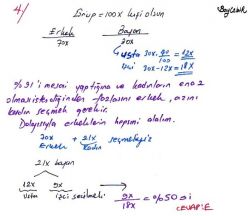 4/ Grup = 100x kişi olsun
Böylelik
Erkek Bayan
70x 30x
usta 30x. 40/100 = 12x
işçi 30x-12x = 18x
%91'i mesai yaptığına ve kadınların en az
olması istendiğinden fazlasını erkek, azını
kadın seçmek gerekir.
Dolayısıyla erkeklerin hepsini alalım.
70x + 21x seçmeliyiz
Erkek Kadın
21x bayan
12x 9x
usta işçi seçilmeli
9x/18x = %50 si
CEVAP: E